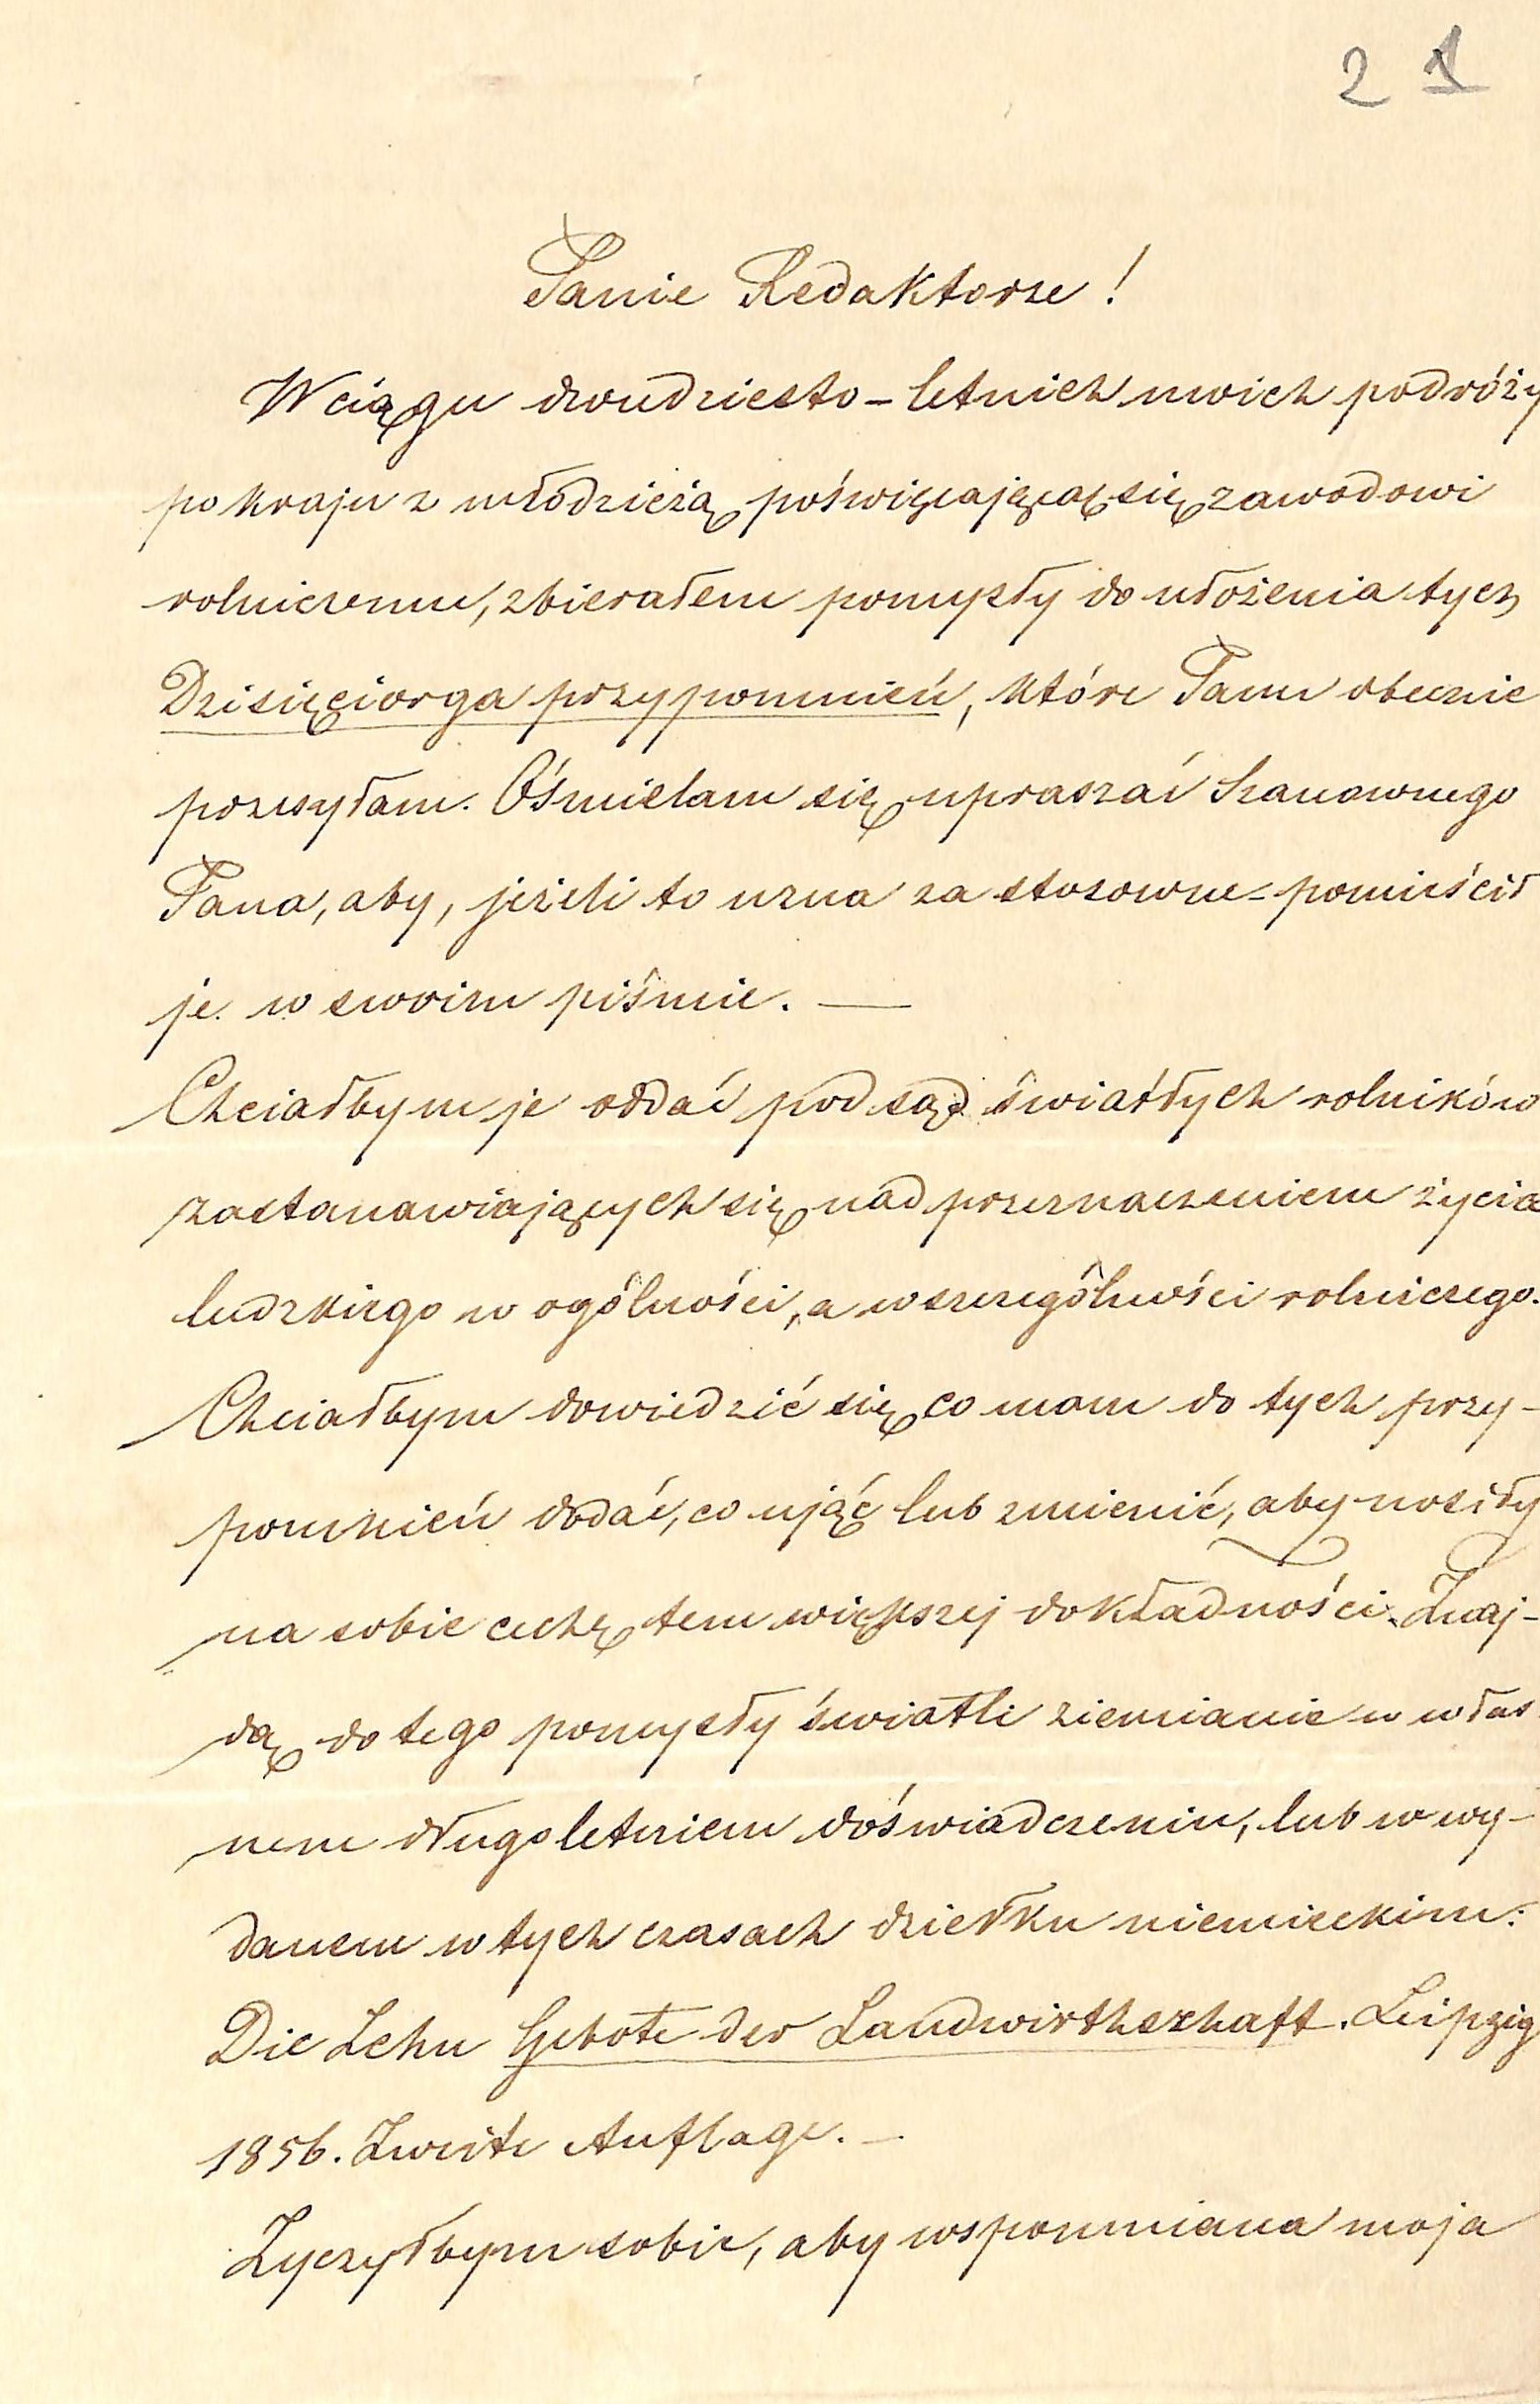 2 1
Panie Redaktorze!
W ciągu dwudziesto-letnich moich podróży
po kraju z młodzieżą poświęcającą się zawodowi
rolniczemu, zbierałem pomysły do ułożenia tych
Dziesięciorga przypomnień, które Panu obecnie
przesyłam. Ośmielam się upraszać Szanownego
Pana, aby, jeżeli to uzna za stosowne - pomieścił
je w swoim piśmie. —
Chciałbym je oddać pod sąd światłych rolników
zastanawiających się nad przeznaczeniem życia
ludzkiego w ogólności, a w szczególności rolniczego.
Chciałbym dowiedzić się co mam do tych przy-
pomnień dodać, co ująć lub zmienić, aby nosiły
na sobie cechę tem większej dokładności. Znaj-
dą do tego pomysły światli ziemianie w włas
nem długoletniem doświadczeniu, lub w wy-
danem w tych czasach dziełku niemieckim:
Die Zehn Gebote der Landwirthschaft. Leipzig
1856. Zweite Auflage. —
Życzyłbym sobie, aby wspomniana moja